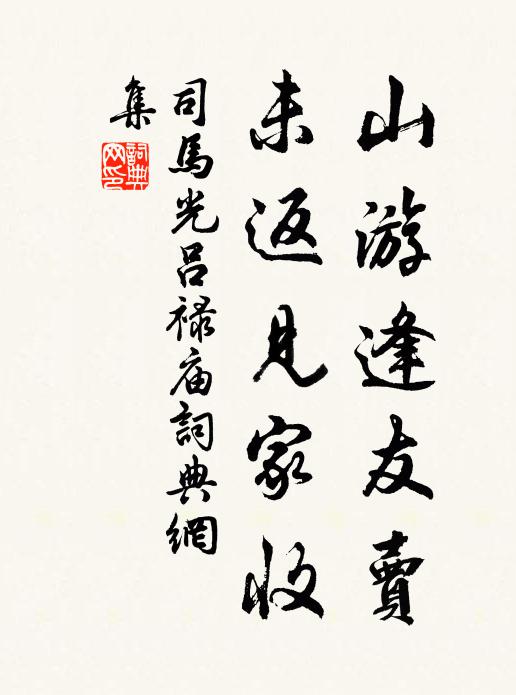 山游逢友賣
未返見家收
司馬光吕禄庙詞典網
集
詞典
网印